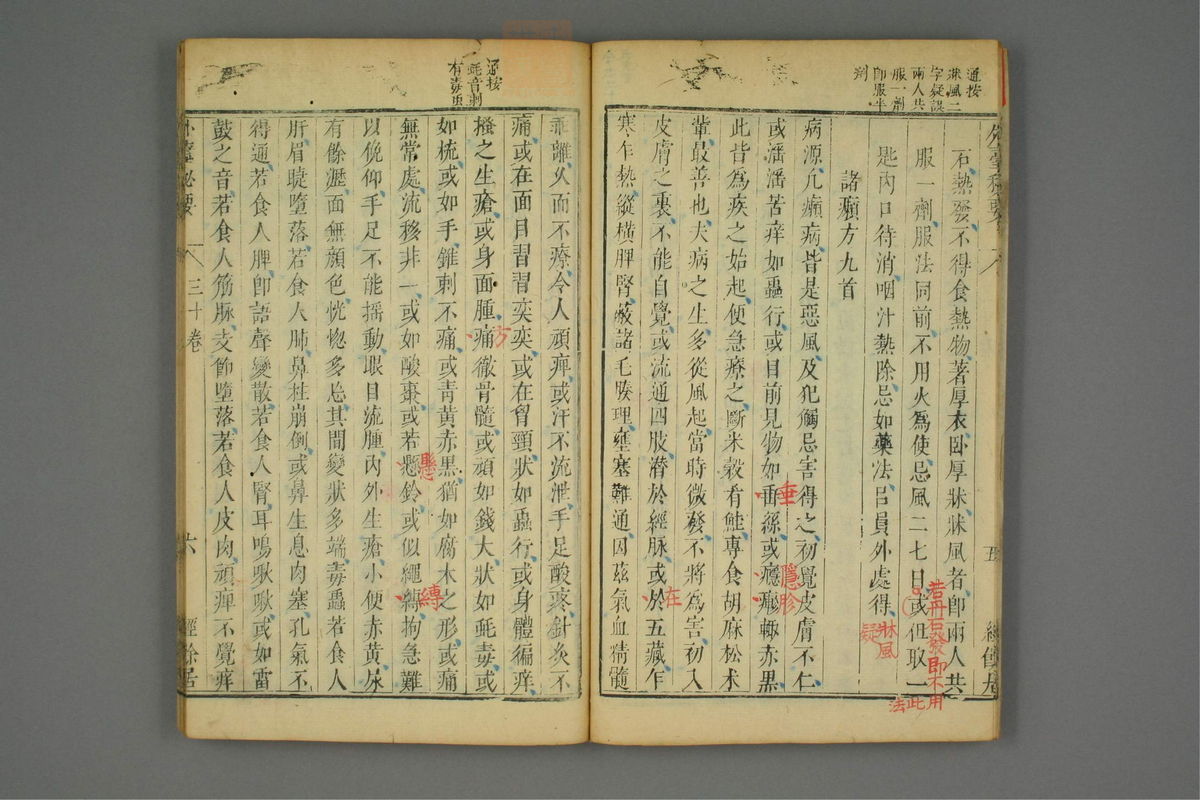 通按
痳風二
字疑誤
兩人共
服一劑
卽服半
劑
石熱發不得食熱物著厚衣卧厚牀痳風者卽兩人共
服一劑服法同前不用火爲使忌風二七日或但取一
若丹石發卽不用
此法
匙內口待消咽汁熱除忌如藥法吕員外處得
痳風
疑
諸癩方九首
病源凡癩病皆是惡風及犯觸忌害得之初覺皮膚不仁
或潘潘苦痒如蟲行或目前見物如垂絲或癮瘮輒赤黑
垂
隱胗
此皆爲疾之始起便急療之斷米穀肴鮭專食胡麻松朮
輩最善也夫病之生多從風起當時微發不將爲害初入
皮膚之裏不能自覺或流通四肢潛於經脉或於五藏乍
在
寒乍熱縱橫脾腎蔽諸毛腠理壅塞難通因茲氣血精髓
五
通按
蚝音刺
有毒虫
乖離久而不療令人頑痺或汗不流泄手足酸疼針灸不
痛或在面目習習奕奕或在胷頸狀如蟲行或身體徧痒
搔之生瘡或身面腫痛徹骨髓或頑如錢大狀如蚝毒或
方
如梳或如手錐刺不痛或青黃赤黑猶如腐木之形或痛
無常處流移非一或如酸棗或若懸鈴或似繩縛拘急難
懸
縛
以俛仰手足不能搖動眼目流腫內外生瘡小便赤黃尿
有餘瀝面無顏色恍惚多忘其間變狀多端毒蟲若食人
肝眉睫墮落若食人肺鼻柱崩倒或鼻生息肉塞孔氣不
得通若食人脾卽語聲變散若食人腎耳鳴啾啾或如雷
鼓之音若食人筋脉支節墮落若食人皮肉頑痺不覺痒
外臺秘要
三十卷
六
經餘居